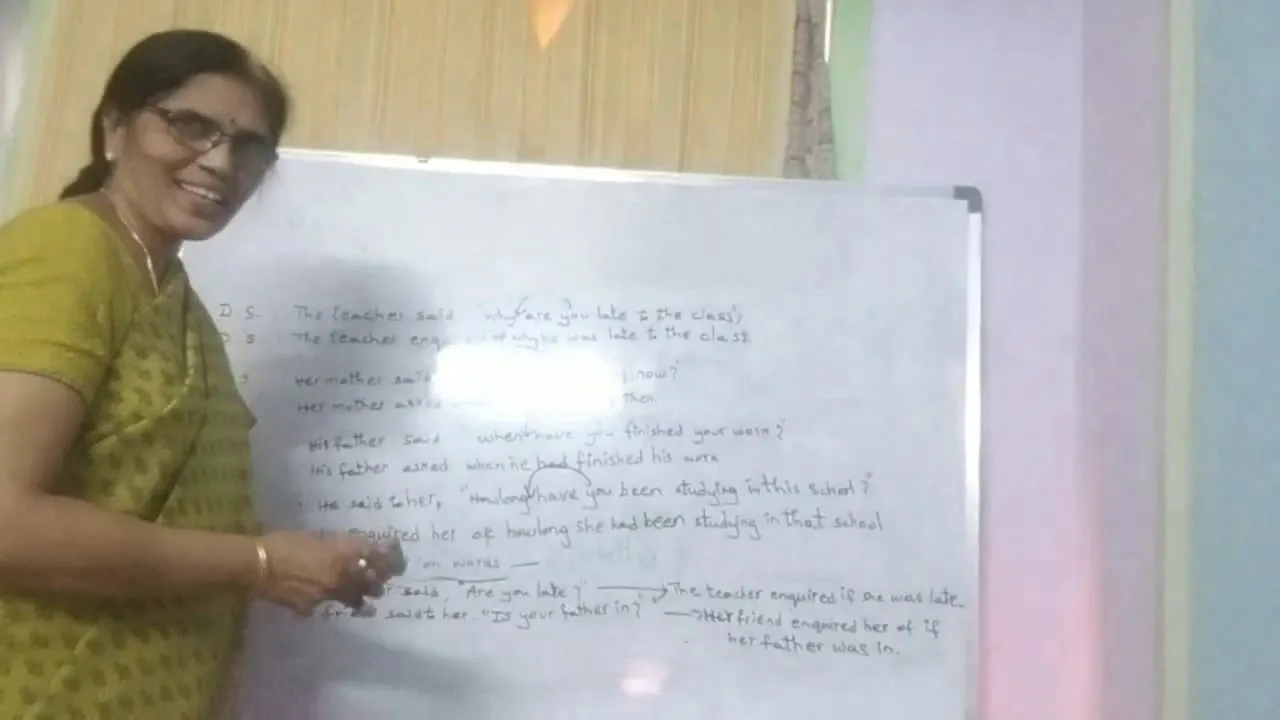 D S. The teacher said "why are you late to the class"?
D S The teacher enq of why he was late to the class.
s Her mother said now?"
Her mother asked then.
His father said when have you finished your work?"
His father asked when he had finished his work
He said to her, "Howlong have you been studying in this school?"
enquired her of howlong she had been studying in that school
on words —
r said, "Are you late?" → The teacher enquired if she was late.
friend said t her. "Is your father in?" → Her friend enquired her of if
her father was in.